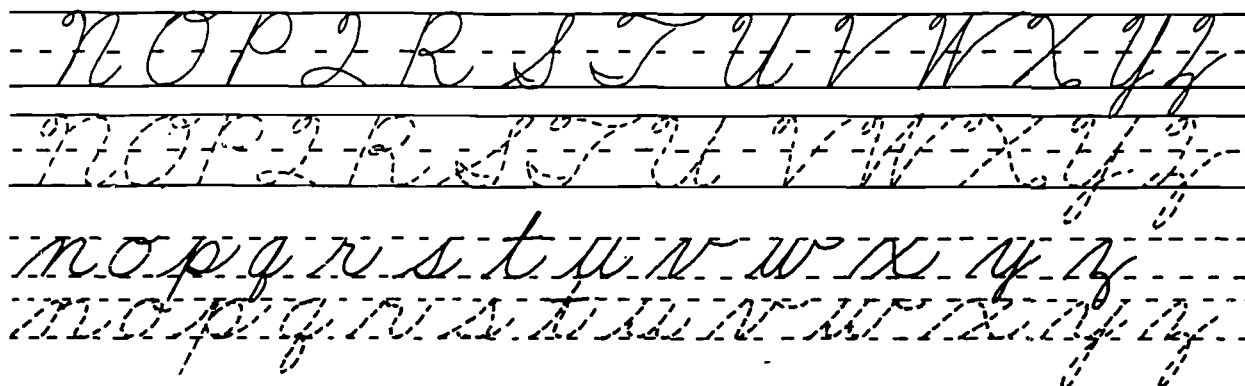 N O P Q R S T U V W X Y Z
N O P Q R S T U V W X Y Z
n o p q r s t u v w x y z
n o p q r s t u v w x y z